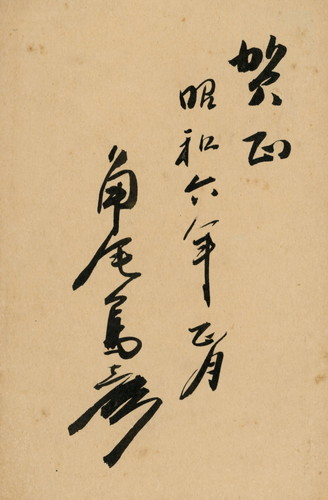 賀正
昭和六年正月
角尾篤彦